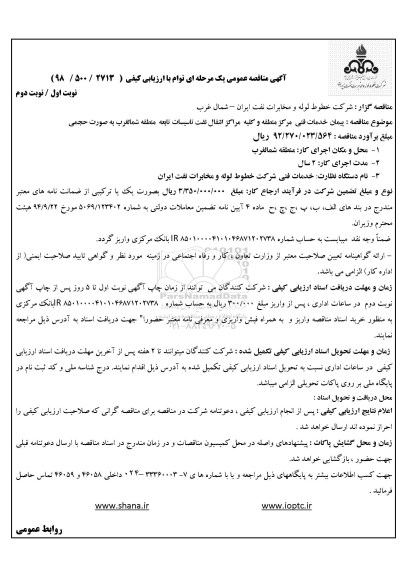 آگهی مناقصه عمومی یک مرحله ای توام با ارزیابی کیفی ( ۲۷۱۳ / ۵۰۰ / ۹۸ )
نوبت اول / نوبت دوم
مناقصه گزار : شرکت خطوط لوله و مخابرات نفت ایران – شمال غرب
موضوع مناقصه : پیمان خدمات فنی مرکز منطقه و کلیه مراکز انتقال نفت تاسیسات تابعه منطقه شمالغرب به صورت حجمی
مبلغ برآورد مناقصه : ۹۲/۲۷۰/۰۳۳/۵۶۴ ریال
۱- محل و مکان اجرای کار: منطقه شمالغرب
۲- مدت اجرای کار: ۲ سال
۳- نام دستگاه نظارت: خدمات فنی شرکت خطوط لوله و مخابرات نفت ایران
نوع و مبلغ تضمین شرکت در فرآیند ارجاع کار: مبلغ ۳/۳۵۰/۰۰۰/۰۰۰ ریال بصورت یک یا ترکیبی از ضمانت نامه های معتبر
مندرج در بند های الف، ب، پ ،ج ،چ ،ح ماده ۴ آیین نامه تضمین معاملات دولتی به شماره ۵۰۶۹/۱۲۳۴۰۲ مورخ ۹۴/۹/۲۲ هیات
محترم وزیران.
ضمناً وجه نقد میبایست به حساب شماره IR ۸۵۰۱۰۰۰۰۴۱۰۱۰۴۶۸۷۱۲۰۲۷۳۸ بانک مرکزی واریز گردد.
- ارائه گواهینامه تعیین صلاحیت معتبر از وزارت تعاون ، کار و رفاه اجتماعی در زمینه مورد نظر و گواهی تایید صلاحیت ایمنی( از
اداره کار) الزامی می باشد.
زمان و مهلت دریافت اسناد ارزیابی کیفی : شرکت کنندگان می توانند از زمان چاپ آگهی نوبت اول تا ۵ روز پس از چاپ آگهی
نوبت دوم در ساعات اداری ، پس از واریز مبلغ ۳۰۰/۰۰۰ ریال به حساب شماره IR ۸۵۰۱۰۰۰۰۴۱۰۱۰۴۶۸۷۱۲۰۲۷۳۸ بانک مرکزی
به منظور خرید اسناد مناقصه واریز و به همراه فیش واریزی و معرفی نامه معتبر حضورا" جهت دریافت اسناد به آدرس ذیل مراجعه
نمایند.
زمان و مهلت تحویل اسناد ارزیابی کیفی تکمیل شده : شرکت کنندگان میتوانند تا ۲ هفته پس از آخرین مهلت دریافت اسناد ارزیابی
کیفی در ساعات اداری نسبت به تحویل اسناد ارزیابی کیفی تکمیل شده به آدرس ذیل اقدام نمایند. درج شناسه ملی و کد ثبت نام در
پایگاه ملی بر روی پاکات تحویلی الزامی میباشد.
محل دریافت و تحویل اسناد :
اعلام نتایج ارزیابی کیفی : پس از انجام ارزیابی کیفی ، دعوتنامه شرکت در مناقصه برای مناقصه گرانی که صلاحیت ارزیابی کیفی را
احراز نموده اند ارسال خواهد شد .
زمان و محل گشایش پاکات : پیشنهادهای واصله در محل کمیسیون مناقصات و در زمان مندرج در اسناد مناقصه با ارسال دعوتنامه قبلی
جهت حضور ، بازگشایی خواهد شد.
جهت کسب اطلاعات بیشتر به پایگاههای ذیل مراجعه و یا با شماره ها ی ۷- ۳۳۳۶۰۰۰۳ -۰۲۴ داخلی ۴۶۰۵۸ و ۴۶۰۵۹ تماس حاصل
فرمائید .
www.ioptc.ir www.shana.ir
روابط عمومی